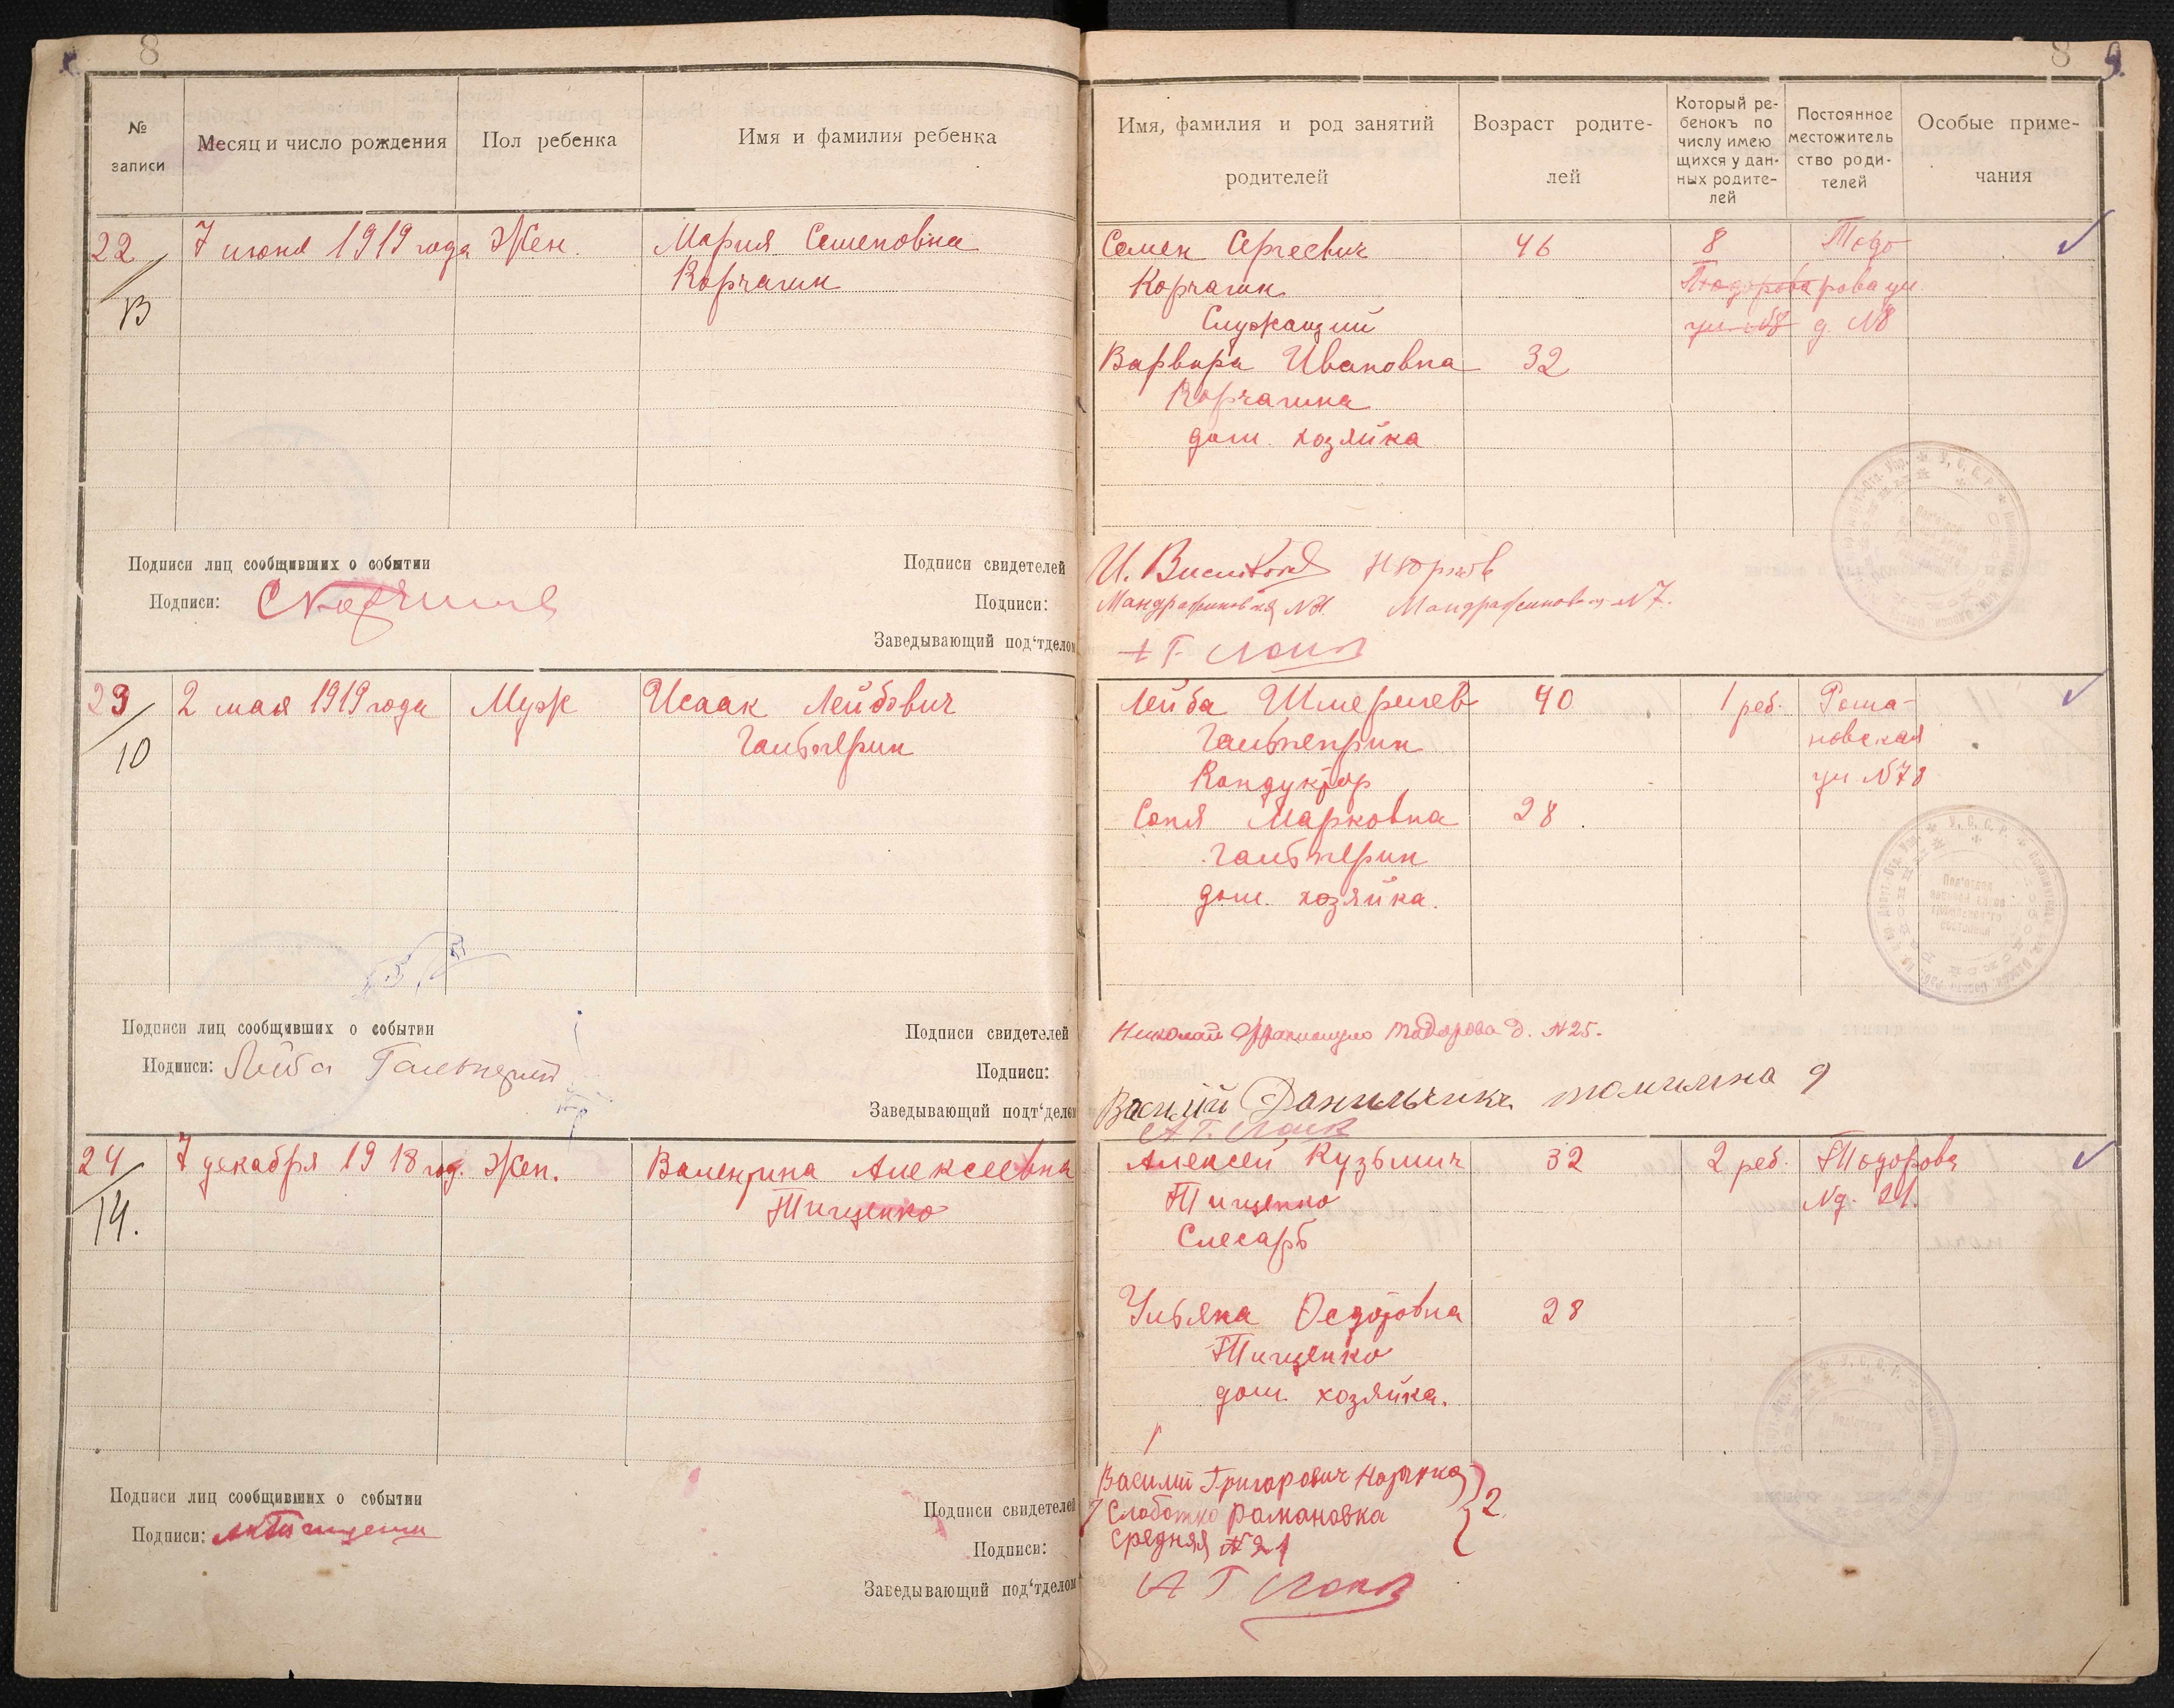 8
8
9.
№
записи
Месяц и число рождения
Пол ребенка
Имя и фамилия ребенка
Имя, фамилия и род занятий
родителей
Возраст родите-
лей
Который ре-
бенокъ по
числу имею
щихся у дан-
ных родите-
лей
Постоянное
местожитель
ство роди-
телей
Особые приме-
чания
22
13
7 июня 1919 года
Жен.
Мария Семеновна
Корчагин
Семен Сергеевич
Корчагин
Служащий
Варвара Ивановна
Корчагина
дом. хозяйка
46
32
8
Тодо
Тодорова
рова ул.
ул. №8
д. №8
Подписи лиц сообщивших о событии
Подписи:
Подписи свидетелей
Подписи:
Заведывающий под‘тделом
№7.
23
10
2 мая 1919 года
Муж
Исаак Лейбович
Гальперин
Лейба Шмерелев
Гальпеприн
Кондуктор
Соня Марковна
Гальперин
дом. хозяйка.
40
28
1 реб.
Рома-
новская
ул №78
У. С. С. Р.
Подписи лиц сообщивших о событии
Подписи: Лейба Гальперин
Подписи свидетелей
Подписи:
Заведывающий подт‘делом
Николай Тодорова д. №25.
Василий Данильчик Томилина 9
24
14.
7 декабря 1918 год.
Жен.
Валентина Алексеевна
Тищенко
Алексей Кузьмич
Тищенко
Слесарь
Ульяна Федотовна
Тищенко
дом. хозяйка.
32
28
2 реб.
Тодорова
№д. 21.
Подписи лиц сообщивших о событии
Подписи:
Подписи свидетелей
Подписи:
Заведывающий под‘тделом
Василий Григорович
Слободка Романовка
Средняя № 21
2